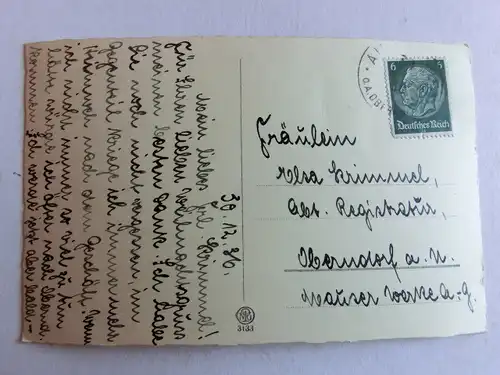 30.12.36.
Mein liebes Frl. Grimmel!
Für Ihren lieben Weihnachtsgruss
meinen besten Dank. Ich habe
Sie noch nicht vergessen, im
Gegenteil ich immer mehr
nach dem Geschäft. Wenn
ich nicht immer so viel zu tun
hätte würde ich aber nach Obernd.
kommen. Ich werde jetzt aber
Fräulein
Elsa Grimmel,
Abt. Registratur,
Oberndorf a. N.
Mauser Werke A.-G.
6 6
Deutsches Reich
3133